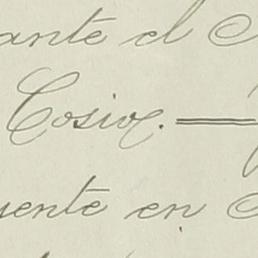 ante el
Cosio.
uente en